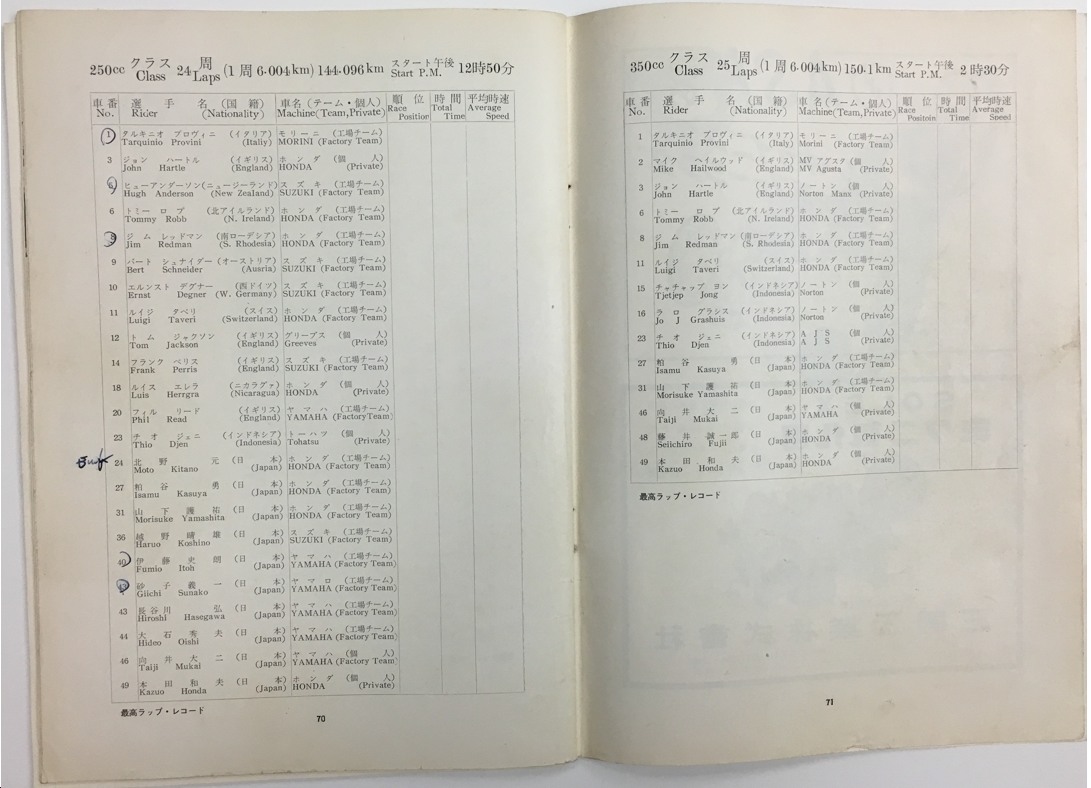 250cc クラス Class 24 周 Laps (1周 6.004km) 144.096km スタート午後 Start P.M. 12時50分
車番 選手名(国籍) 車名(チーム・個人) 順位 時間 平均時速
No. Rider (Nationality) Machine(Team,Private) Race Position Total Time Average Speed
1 タルキニオ プロヴィニ (イタリア) モリーニ (工場チーム)
Tarquinio Provini (Italiy) MORINI (Factory Team)
3 ジョン ハートル (イギリス) ホンダ (個人)
John Hartle (England) HONDA (Private)
ヒューアンダーソン(ニュージーランド) スズキ (工場チーム)
Hugh Anderson (New Zealand) SUZUKI (Factory Team)
6 トミー ロブ (北アイルランド) ホンダ (工場チーム)
Tommy Robb (N. Ireland) HONDA (Factory Team)
8 ジム レッドマン (南ローデシア) ホンダ (工場チーム)
Jim Redman (S. Rhodesia) HONDA (Factory Team)
9 バート シュナイダー (オーストリア) スズキ (工場チーム)
Bert Schneider (Ausria) SUZUKI (Factory Team)
10 エルンスト デグナー (西ドイツ) スズキ (工場チーム)
Ernst Degner (W. Germany) SUZUKI (Factory Team)
11 ルイジ タベリ (スイス) ホンダ (工場チーム)
Luigi Taveri (Switzerland) HONDA (Factory Team)
12 トム ジャクソン (イギリス) グリーブス (個人)
Tom Jackson (England) Greeves (Private)
14 フランク ペリス (イギリス) スズキ (工場チーム)
Frank Perris (England) SUZUKI (Factory Team)
18 ルイス エレラ (ニカラグァ) ホンダ (個人)
Luis Herrgra (Nicaragua) HONDA (Private)
20 フィル リード (イギリス) ヤマハ (工場チーム)
Phil Read (England) YAMAHA (FactoryTeam)
23 チオ ジェニ (インドネシア) トーハツ (個人)
Thio Djen (Indonesia) Tohatsu (Private)
24 北野 元 (日本) ホンダ (工場チーム)
Moto Kitano (Japan) HONDA (Factory Team)
27 粕谷 勇 (日本) ホンダ (工場チーム)
Isamu Kasuya (Japan) HONDA (Factory Team)
31 山下護祐 (日本) ホンダ (工場チーム)
Morisuke Yamashita (Japan) HONDA (Factory Team)
36 越野晴雄 (日本) スズキ (工場チーム)
Haruo Koshino (Japan) SUZUKI (Factory Team)
40 伊藤史朗 (日本) ヤマハ (工場チーム)
Fumio Itoh (Japan) YAMAHA (Factory Team)
砂子義一 (日本) ヤマロ (工場チーム)
Giichi Sunako (Japan) YAMAHA (Factory Team)
43 長谷川 弘 (日本) ヤマハ (工場チーム)
Hiroshi Hasegawa (Japan) YAMAHA (Factory Team)
44 大石秀夫 (日本) ヤマハ (工場チーム)
Hideo Oishi (Japan) YAMAHA (Factory Team)
46 向井大二 (日本) ヤマハ (個人)
Taiji Mukai (Japan) YAMAHA (Factory Team)
49 本田和夫 (日本) ホンダ (個人)
Kazuo Honda (Japan) HONDA (Private)
最高ラップ・レコード
70
350cc クラス Class 25 周 Laps (1周 6.004km) 150.1km スタート午後 Start P.M. 2時30分
車番 選手名(国籍) 車名(チーム・個人) 順位 時間 平均時速
No. Rider (Nationality) Machine(Team,Private) Race Positoin Total Time Average Speed
1 タルキニオ プロヴィニ (イタリア) モリーニ (工場チーム)
Tarquinio Provini (Italy) Morini (Factory Team)
2 マイク ヘイルウッド (イギリス) MV アグスタ (個人)
Mike Hailwood (England) MV Agusta (Private)
3 ジョン ハートル (イギリス) ノートン (個人)
John Hartle (England) Norton Manx (Private)
6 トミー ロブ (北アイルランド) ホンダ (工場チーム)
Tommy Robb (N. Ireland) HONDA (Factory Team)
8 ジム レッドマン (南ローデシア) ホンダ (工場チーム)
Jim Redman (S. Rhodesia) HONDA (Factory Team)
11 ルイジ タベリ (スイス) ホンダ (工場チーム)
Luigi Taveri (Switzerland) HONDA (Factory Team)
15 チャチャップ ヨン (インドネシア) ノートン (個人)
Tjetjep Jong (Indonesia) Norton (Private)
16 ラロ グラシス (インドネシア) ノートン (個人)
Jo J Grashuis (Indonesia) Norton (Private)
23 チオ ジェニ (インドネシア) AJS (個人)
Thio Djen (Indonesia) AJS (Private)
27 粕谷 勇 (日本) ホンダ (工場チーム)
Isamu Kasuya (Japan) HONDA (Factory Team)
31 山下護祐 (日本) ホンダ (工場チーム)
Morisuke Yamashita (Japan) HONDA (Factory Team)
46 向井大二 (日本) ヤマハ (個人)
Taiji Mukai (Japan) YAMAHA (Private)
48 藤井誠一郎 (日本) ホンダ (個人)
Seiichiro Fujii (Japan) HONDA (Private)
49 本田和夫 (日本) ホンダ (個人)
Kazuo Honda (Japan) HONDA (Private)
最高ラップ・レコード
71